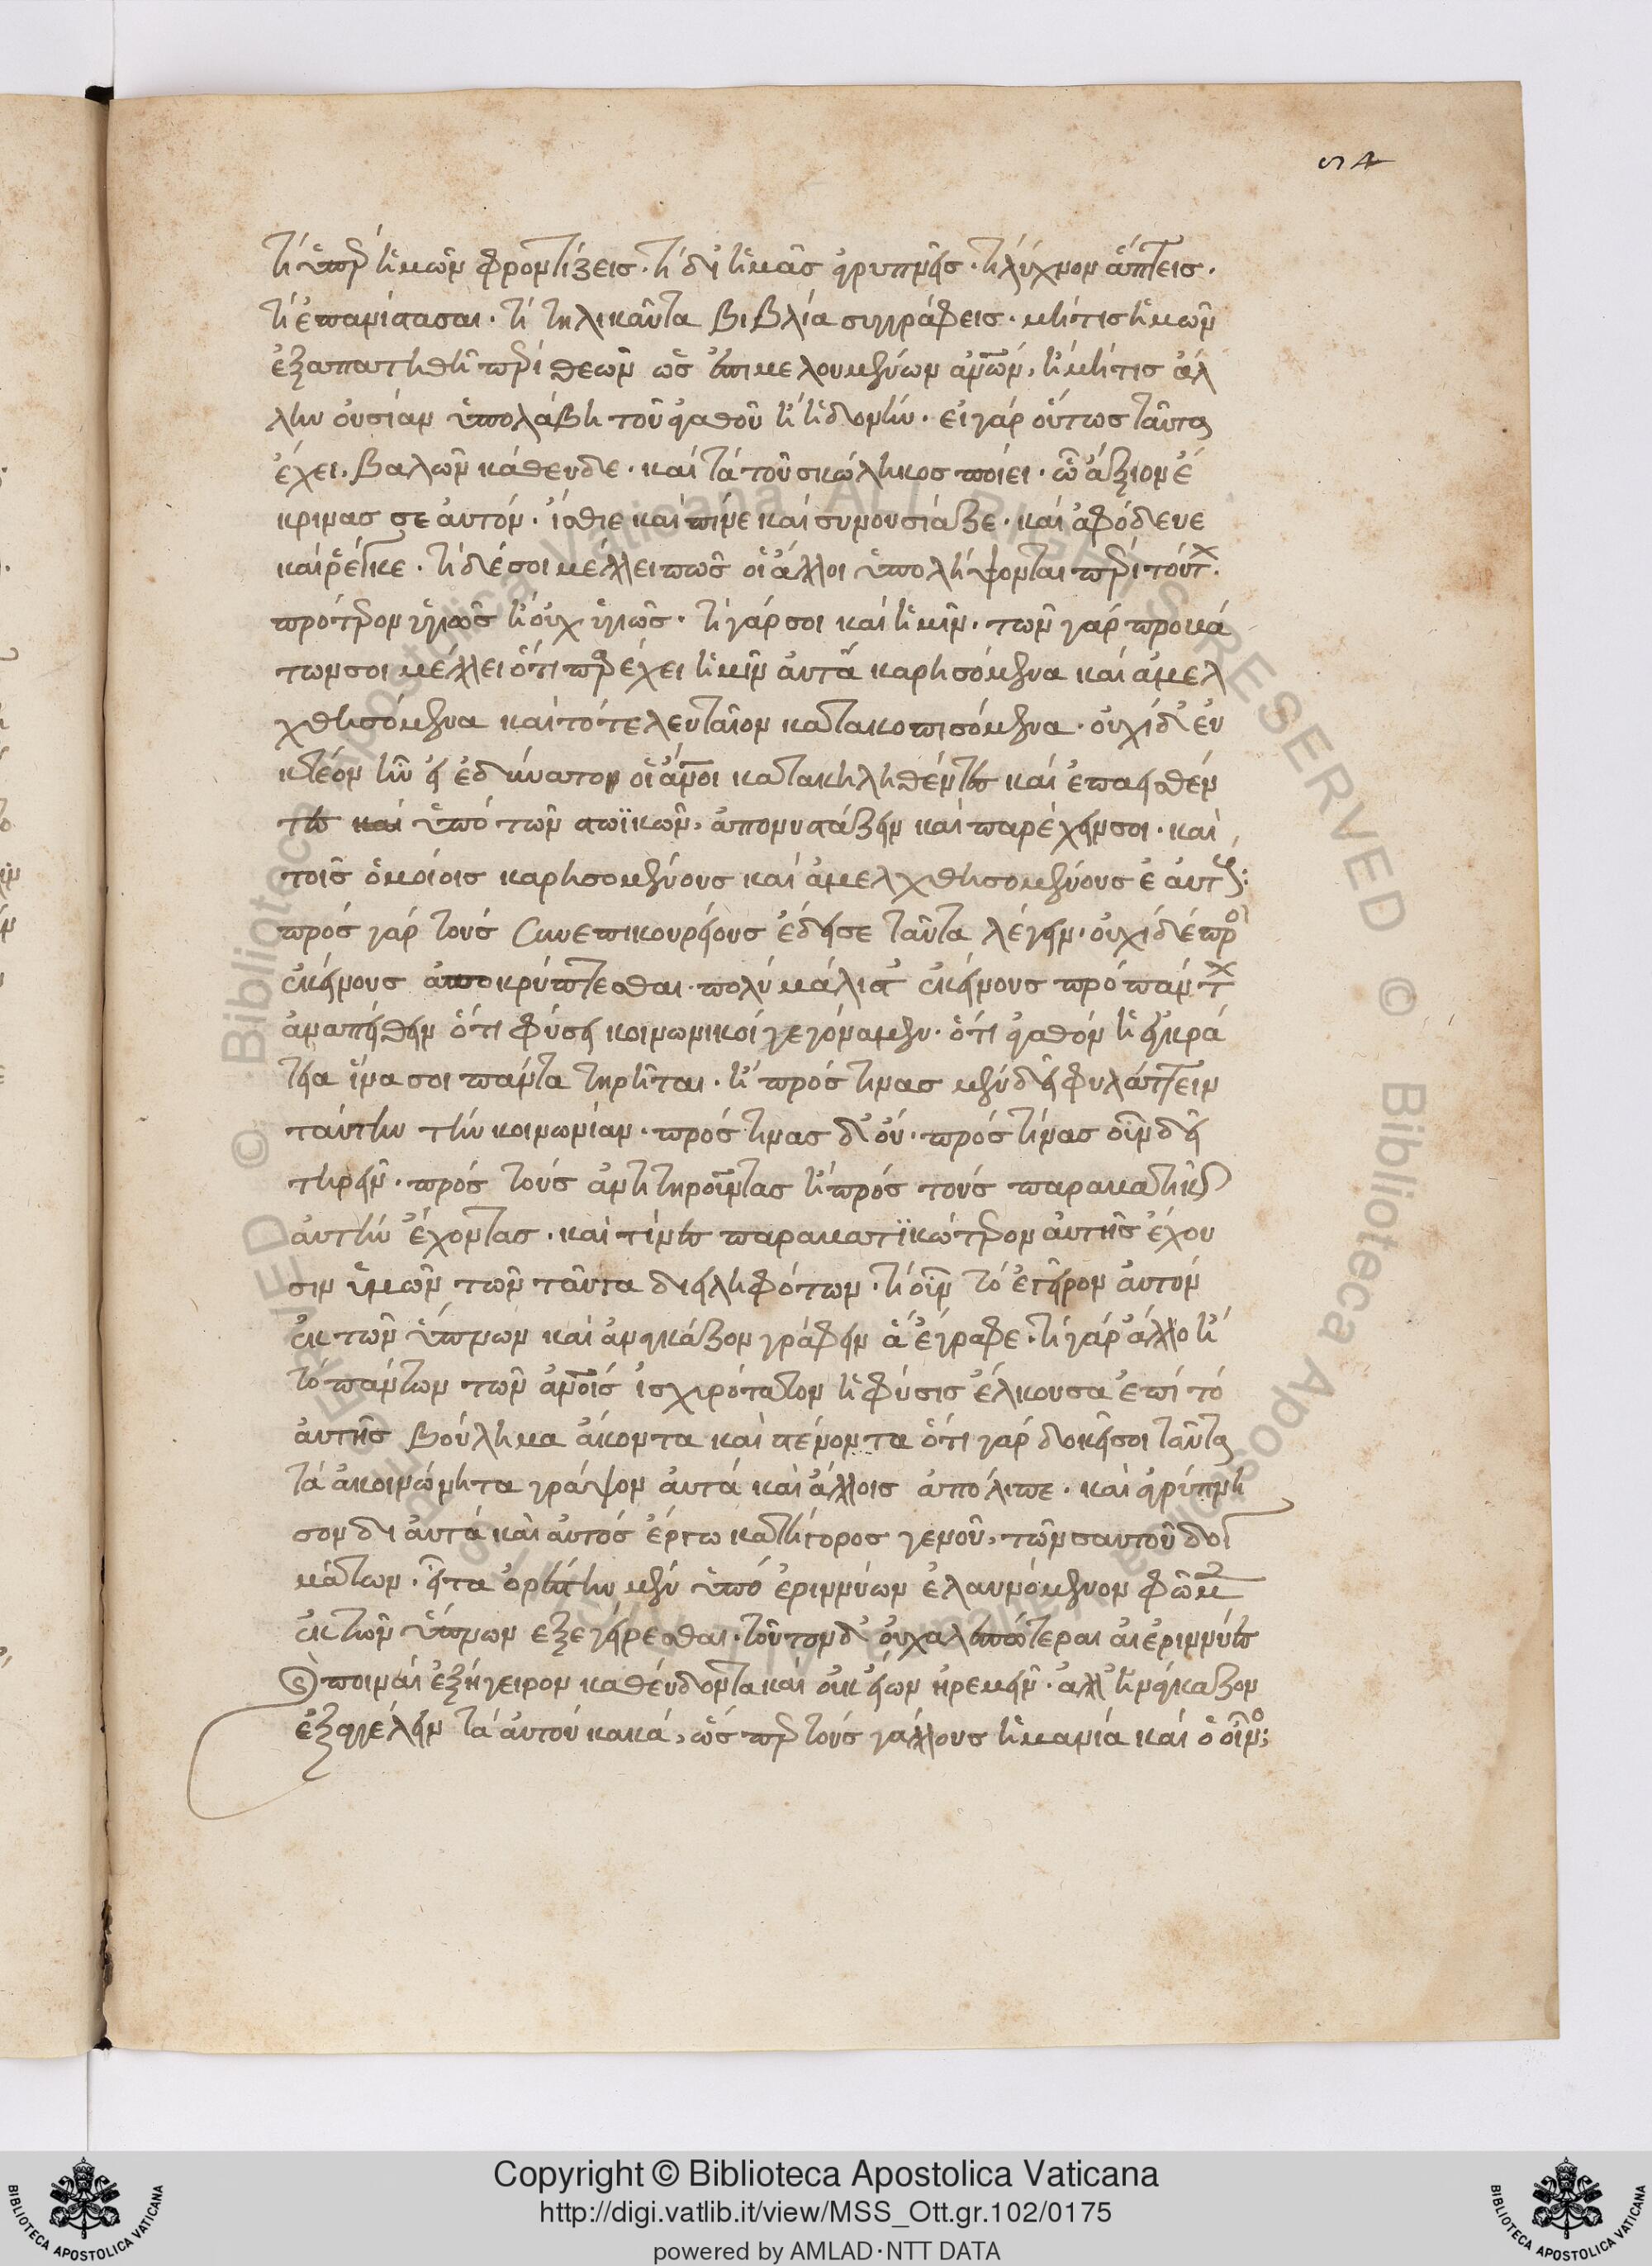 ϛλ
τί ὑπὲρ ἡμῶν φροντίζεις. τί δι ἡμᾶς ἀγρυπνεῖς. τί λύχνον ἅπτεις.
τί ἐπανίστασαι. τί τηλικαῦτα βιβλία συγγράφεις. μή τις ἡμῶν
ἐξαπατηθῇ περὶ θεῶν ὡς ἐπιμελουμένων ἀνθρώπων, ἢ μή τις ἄλ
λην οὐσίαν ὑπολάβη τοῦ ἀγαθοῦ ἢ ἡδονήν. εἰ γὰρ οὕτως ταῦτα
ἔχει, βαλὼν κάθευδε. καὶ τὰ τοῦ σκώληκος ποίει. ὧν ἄξιον ἔ
κρινας σε αυτόν. ἔσθιε καὶ πῖνε καὶ συνουσίαζε. καὶ ἀφόδευε
καὶ ῥέγκε. τί δέ σοι μέλλει πῶς οἱ ἄλλοι ὑπολήψονται περὶ τούτων.
πρότερον ὑγιῶς ἢ οὐχ ὑγιῶς. τί γάρ σοι καὶ ἡμῖν. τῶν γὰρ προβά
των σοι μέλλει ὅτι παρέχει ἡμῖν αὐτὰ καρησόμενα καὶ ἀμελ
χθησόμενα καὶ τὸ τελευταῖον κατακοπισόμενα. οὐχὶ δ' εὐ
κτέον ἦν εἰ ἐδύναντο οἱ ἄνθρωποι κατακηληθέντες καὶ ἐπασθέν
τες καὶ ὑπὸ τῶν στωϊκῶν, ἀπονυστάζειν καὶ παρέχειν σοι. καὶ
τοῖς ὁμοίοις καρησομένους καὶ ἀμελχθησομένους ἑαυτούς:
πρὸς γὰρ τοὺς συνεπικουρείους ἔδει σε ταῦτα λέγειν. οὐχὶ δὲ πρὸς
ἐκείνους ἀποκρύπτεσθαι. πολὺ μάλιστ' ἐκείνους πρὸ πάντων
ἀναπείθειν ὅτι φύσει κοινωνικοὶ γεγόναμεν. ὅτι ἀγαθὸν ἡ ἐγκρά
τεια ἵνα σοι πάντα τηρῆται. ἢ πρός τινας μὲν δεῖ φυλάττειν
ταύτην τὴν κοινωνίαν. πρός τινας δ' οὔ. πρὸς τίνας οὖν δεῖ
τηρεῖν. πρὸς τοὺς ἀντιτηροῦντας ἢ πρὸς τοὺς παραβατικῶς
αὐτὴν ἔχοντας. καὶ τίνες παραβατϊκώτερον αὐτῆς ἔχου
σιν ὑμῶν τῶν ταῦτα διειληφότων. τί οὖν τὸ ἐγεῖρον αὐτὸν
ἐκ τῶν ὕπνων καὶ ἀναγκάζον γράφειν ἃ ἔγραφε. τί γὰρ ἄλλο ἢ
τὸ πάντων τῶν ἀνθρώποις ἰσχυρότατον ἡ φύσις ἕλκουσα ἐπὶ τὸ
αὐτῆς βούλημα ἄκοντα καὶ στένοντα ὅτι γὰρ δοκεῖ σοι ταῦτα
τὰ ἀκοινώνητα γράψον αὐτὰ καὶ ἄλλοις ἀπόλιπε. καὶ ἀγρύπνη
σον δι αὐτὰ καὶ αὐτὸς ἔργω κατήγορος γενοῦ, τῶν σαυτοῦ δογ
μάτων. εἶτα ὀρέστην μὲν ὑπὸ ἐριννύων ἐλαυνόμενον φῶμεν
ἐκ τῶν ὕπνων ἐξεγείρεσθαι. τοῦτον δ' οὐ χαλεπώτεραι αἱ ἐριννύες
ποιναὶ ἐξήγειρον καθεύδοντα καὶ οὐκ εἴων ἠρεμεῖν. ἀλλ' ἠνάγκαζον
ἐξαγγέλειν τὰ αὐτοῦ κακά, ὥσπερ τοὺς γάλλους ἡ μανία καὶ ὁ οἶνος;
Copyright © Biblioteca Apostolica Vaticana
http://digi.vatlib.it/view/MSS_Ott.gr.102/0175
powered by AMLAD·NTT DATA